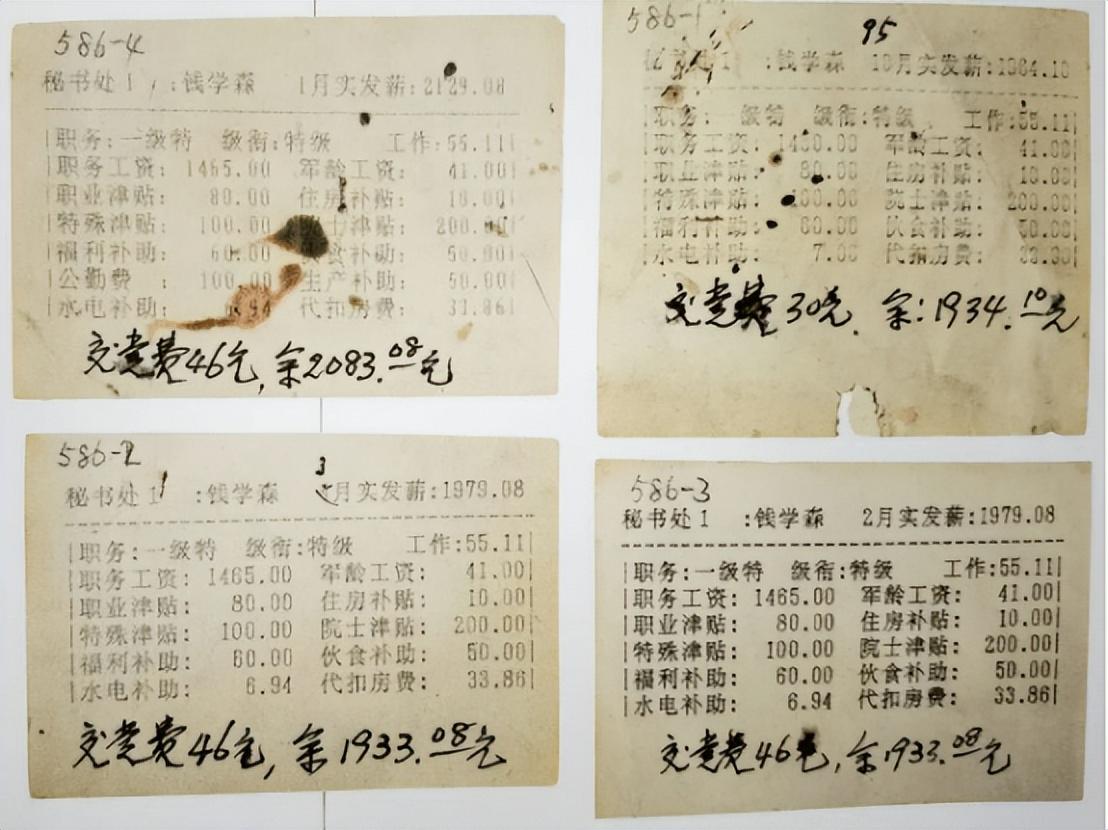 586-4
秘书处1 :钱学森 1月实发薪:2129.08
职务:一级特 级衔:特级 工作:55.11
职务工资: 1465.00 军龄工资: 41.00
职业津贴: 80.00 住房补贴: 10.00
特殊津贴: 100.00 士津贴: 200.00
福利补助: 60.00 食补助: 50.00
公勤费 : 100.00 生产补助: 50.00
水电补助: 6.94 代扣房费: 33.86
交党费46元,余2083.08元
586-1
95
处1 :钱学森 10月实发薪:1964.10
职务: 一级特 级衔:特级 工作:55.11
职务工资: 1450.00 军龄工资: 41.00
职业津贴: 80.00 住房补贴: 10.00
特殊津贴: 100.00 院士津贴: 200.00
福利补助: 60.00 伙食补助: 50.00
水电补助: 7.00 代扣房费:
交党费30元. 余:1934.10元
586-2
秘书处1 :钱学森 3月实发薪:1979.08
职务:一级特 级衔:特级 工作:55.11
职务工资: 1465.00 军龄工资: 41.00
职业津贴: 80.00 住房补贴: 10.00
特殊津贴: 100.00 院士津贴: 200.00
福利补助: 60.00 伙食补助: 50.00
水电补助: 6.94 代扣房费: 33.86
交党费46元,余1933.08元
586-3
秘书处1 :钱学森 2月实发薪:1979.08
职务:一级特 级衔:特级 工作:55.11
职务工资: 1465.00 军龄工资: 41.00
职业津贴: 80.00 住房补贴: 10.00
特殊津贴: 100.00 院士津贴: 200.00
福利补助: 60.00 伙食补助: 50.00
水电补助: 6.94 代扣房费: 33.86
交党费46元,余1933.08元